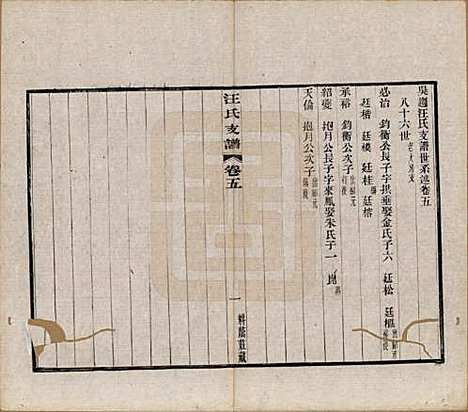 吳趨汪氏支譜世系述卷五
八十六世
必治 鈞衡公長子字拱垂娶金氏子六 廷松 廷樞
廷楷 廷模 廷桂 廷榕
承裕 鈞衡公次子
紹夔 抱月公長子字來鳳娶朱氏子一 崑
天倫 抱月公次子
汪氏支譜
卷五
一
耕蔭莊藏